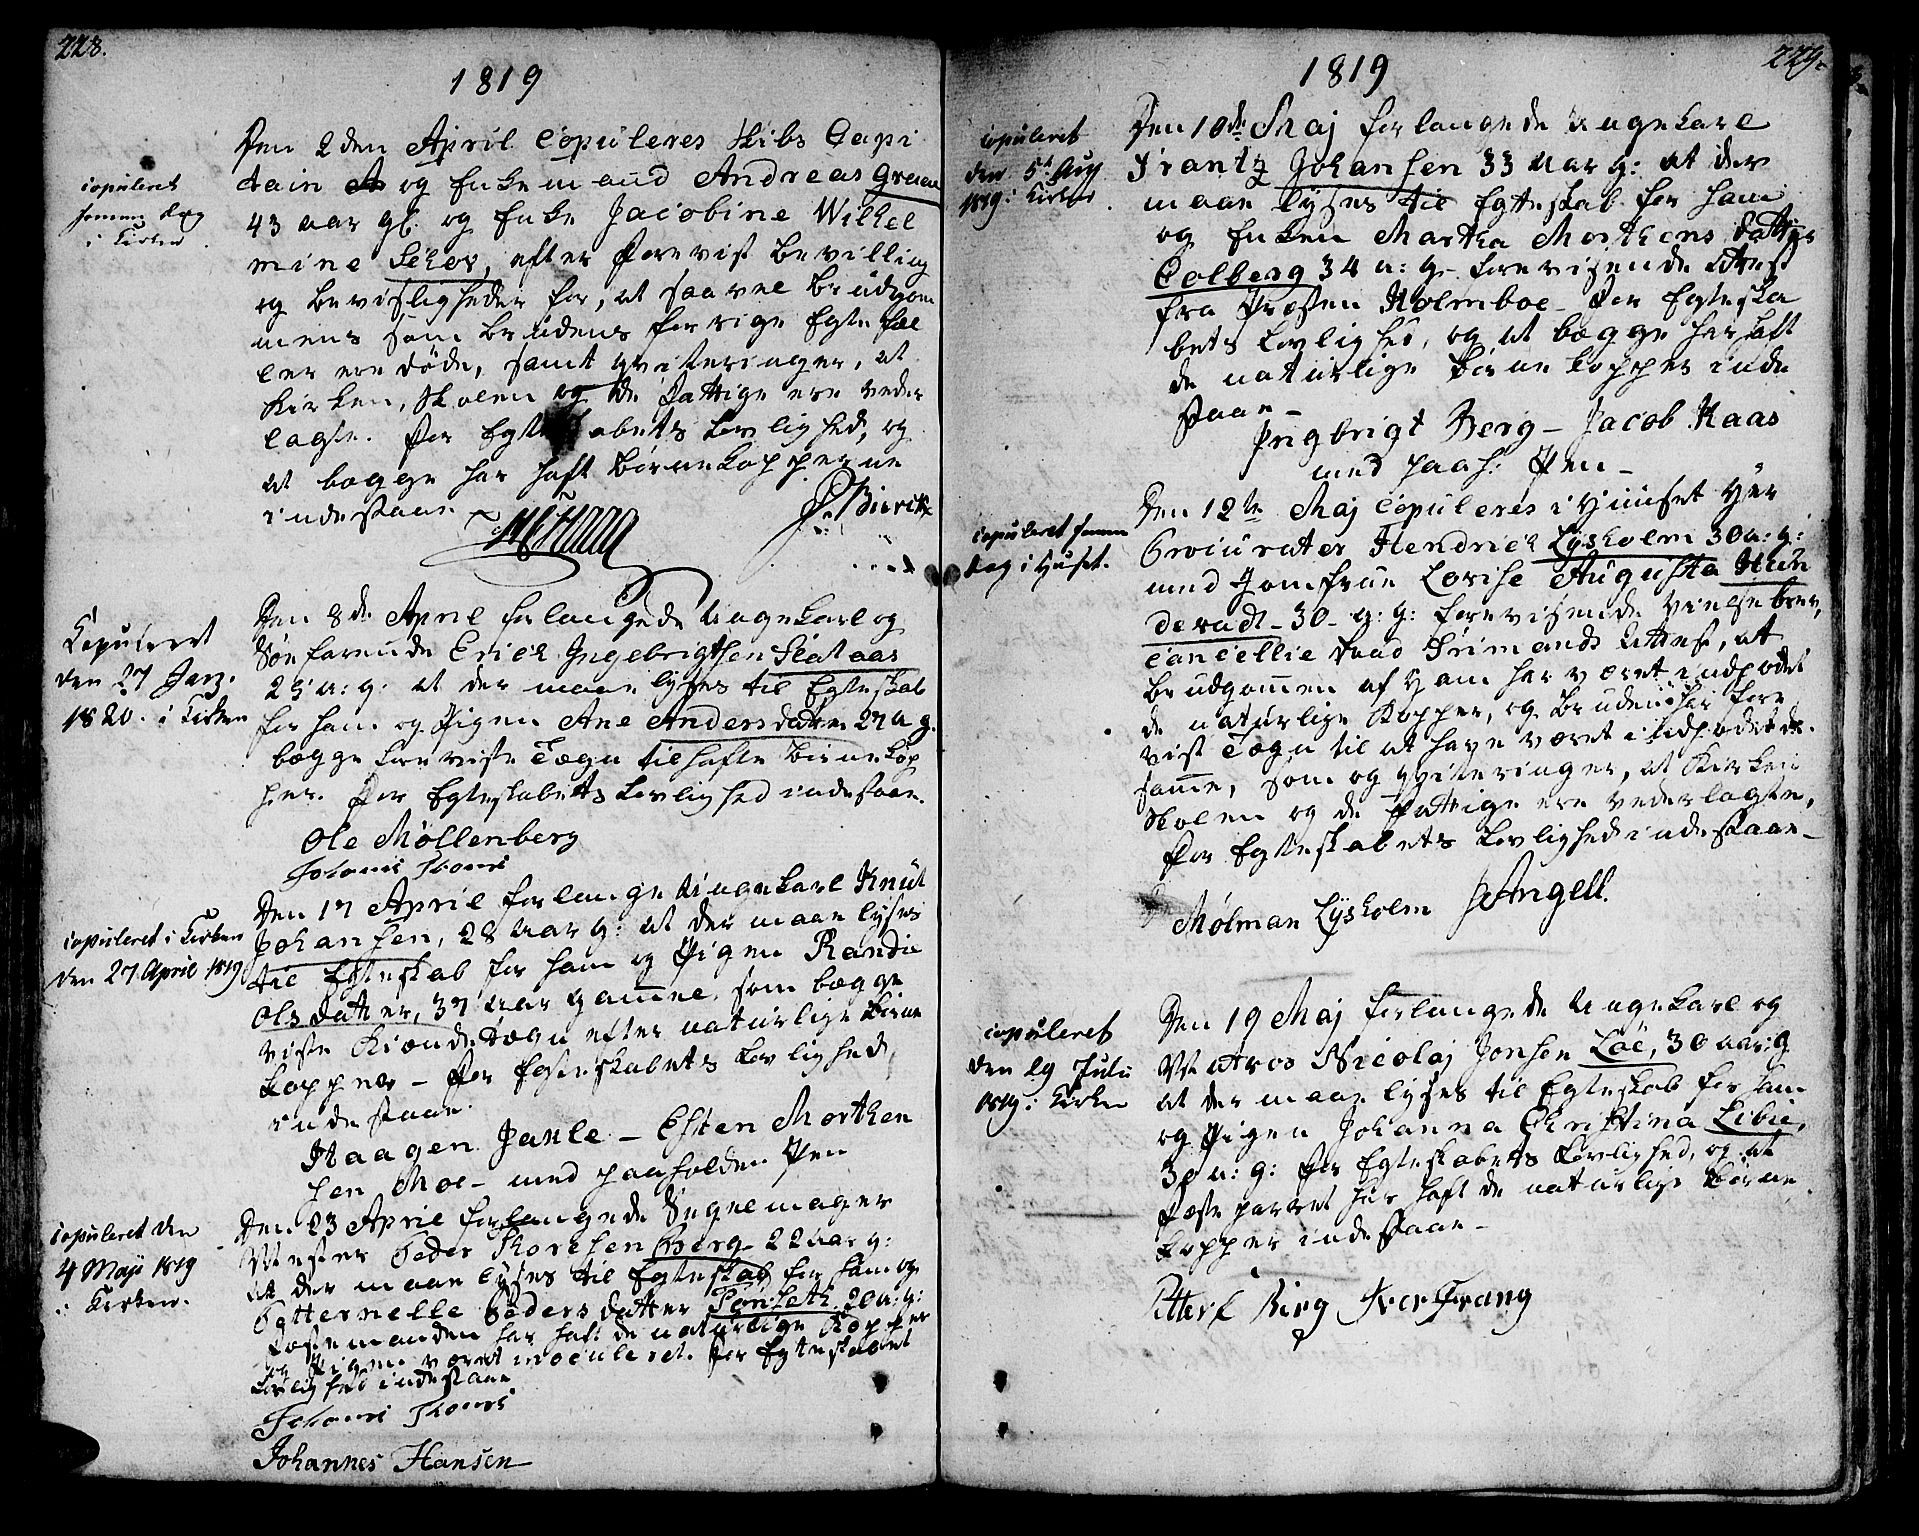 228.
1819
copuleret
samme dag
i Kirken.
Den 2den April Copuleres Skibs Capi
tain og Enkemand Andreas Greian
43 aar gl. og Enke Jacobine Wilhel
mine Scher, efter forevist bevilling
og bevisligheder for, at saavel brudgom
mens som brudens forrige Egtefæl
ler ere døde, samt qviteringer, at
Kirken, Skolen og de Fattige ere veder
lagte. For Egteskabets Lovlighed, og
at begge har haft Børnekopperne
indestaae
Copuleret
den 27 Janr.
1820. i Kirken
Den 8de April forlangede Ungekarl og
Søefarende Erich Ingebrigtsen Slataas
25 a: g: at der maae lyses til Egteskab
for ham og Pigen Ane Andersdatter 27 a g.
begge foreviste Tegn til hafte Børnekop
per. For Egteskabets Lovlighed indestaae.
Ole Møllenberg
copuleret i Kirken
den 27 April 1819
Den 17 April forlangede Ungekarl Knut
Johansen, 28 Aar g: at der maae lyses
til Egteskab for ham og Pigen Randie
Olsdatter, 37 Aar gamme, som begge
viste Kiendetegn efter naturlige Børne
kopper - For Egteskabets Lovlighed
indestaae.
Haagen Janle - Esten Morthen
sen Moe - med paaholden Pen
copuleret den
4 Maji 1819
i Kirken.
Den 23 April forlangede Segelmager
Mester Peder Thorchsen Berg 22 aar g:
at der maae lyses til Egteskab for ham og
Petternelle Pedersdatter Sanseth 20 a: g:
Fæstemanden har haft de naturlige Kopper
og Pigen været inoculeret. For Egteskabet
Lovlighed indestaae
Johannes Hansen
229.
1819
copuleret
den 5t Aug
1819 i Kirken
Den 10de Maj forlangede Ungekarl
Frantz Johansen 33 Aar g: at der
maae lyses til Egteskab for ham
og Enken Martha Morthens datter
Colberg 34 a: g- forevisende Attest
fra Præsten Holmboe - For Egteska
bets Lovlighed, og at begge har haft
de naturlige Børnekopper inde
staae -
Ingbrigt Berg - Jacob Kaas
med paah: Pen -
copuleret samme
dag i Huset.
Den 12te Maj Copuleres i Huuset Her
Procurator Hendrich Lysholm 30 a: g:
med Jomfrue Lovise Augusta Hun
deradt - 30 - a: g: forevisende Vielsebrev,
Cancellie Raad Friemands Attest, at
brudgommen af ham har været indpodet
de naturlige Kopper, og bruden har fore
vist Tegn til at have været indpodet de.
samme, som og qviteringer, at Kirken
Skolen og de fattige ere vederlagte,
For Egteskabets Lovlighed indestaae -
Mølman Lysholm JAngell.
copuleret
den 29 Julii
1819 i Kirken
Den 19 Maj forlangede Ungekarl og
Matros Nicolaj Jonsen Løe, 30 aar: g
at der maae lyses til Egteskab for ham
og Pigen Johanna Christina Libie,
30 a: g: for Egteskabets Lovlighed, og at
Fæsteparret har haft de naturlige Børne
kopper indestaae -
Petter L Berg Iver Frang